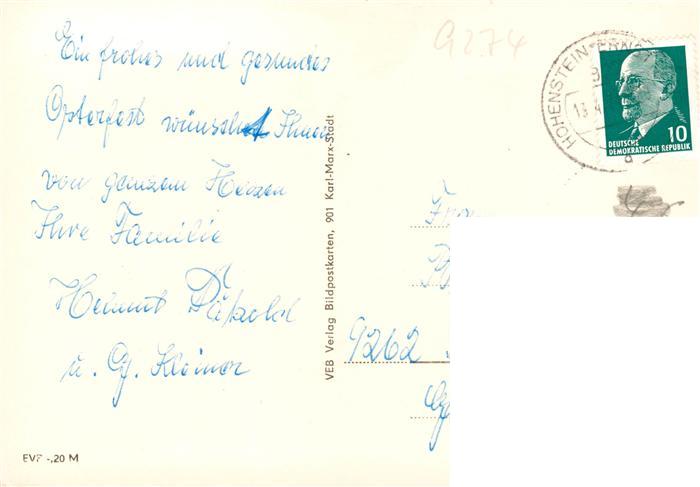 Ein frohes und gesundes
Osterfest wünscht Ihnen
von ganzem Herzen
Ihre Familie
Helmut Pätzold
u.
VEB Verlag Bildpostkarten, 901 Karl-Marx-Stadt
EVP -,20 M
G274
HOHENSTEIN-ERNST
13.4
a
10
DEUTSCHE
DEMOKRATISCHE REPUBLIK
Frau
9262